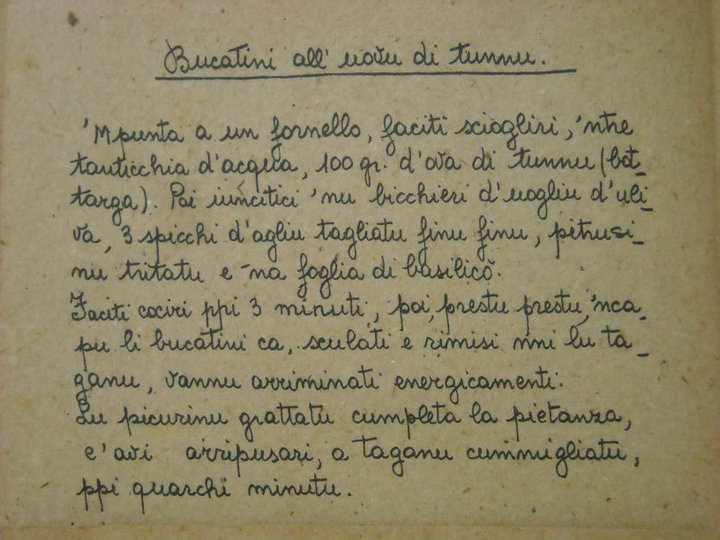 Bucatini all' uovu di tunnu.
'Mpunta a un fornello, faciti sciogliri, 'ntre
tanticchia d'acqua, 100 gr. d'ova di tunnu (bot_
targa). Poi iuncitici 'nu bicchieri d'uogliu d'uli_
va, 3 spicchi d'agliu tagliatu finu finu, pitrusi_
nu tritatu e -na foglia di basilicò.
Faciti cociri ppi 3 minuti, poi, prestu prestu, 'nca_
pu li bucatini ca, sculati e rimisi nni lu ta_
ganu, vannu arriminati energicamenti.
Lu picurinu grattatu cumpleta la pietanza,
e' avi arripusari, a taganu cummigliatu,
ppi quarchi minutu.